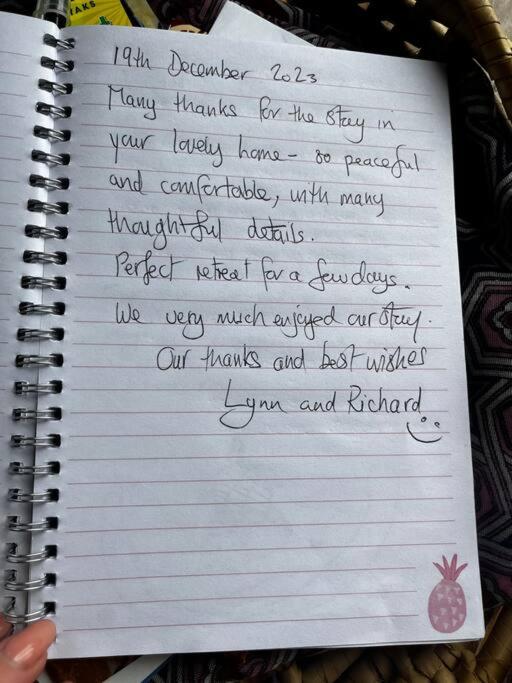 AKS
19th December 2023
Many thanks for the stay in
your lovely home - so peaceful
and comfortable, with many
thoughtful details.
Perfect retreat for a few days.
We very much enjoyed our stay.
Our thanks and best wishes
Lynn and Richard